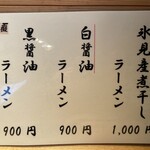 氷見産煮干し
ラーメン
1,000円
白醤油
ラーメン
900円
黒醤油
ラーメン
900円